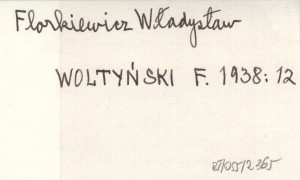 Florkiewicz Władysław
WOLTYŃSKI F. 1938: 12